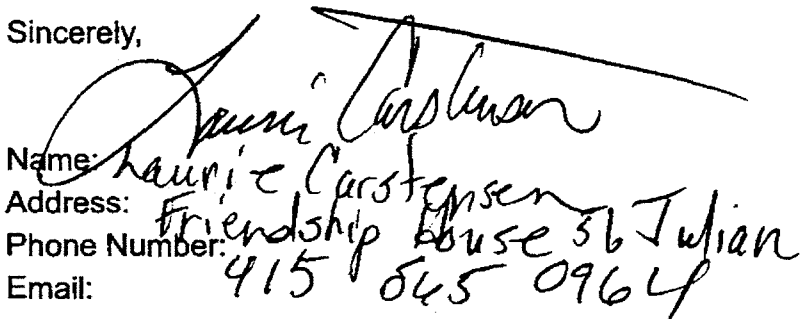 Sincerely,
Laurie Carstensen
Name: Laurie Carstensen
Address: Friendship House 56 Julian
Phone Number: 415 865 0964
Email: